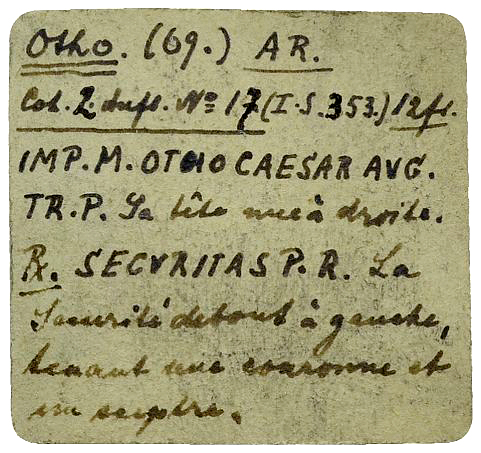 Otho. (69.) AR.
Coh. 2. Aufl. Nº 17 (I. S. 353.) 12 fr.
IMP. M. OTHO CAESAR AVG.
TR. P. Sa tête nue à droite.
℞. SECVRITAS P. R. La
Securité debout à gauche,
tenant une couronne et
un sceptre.